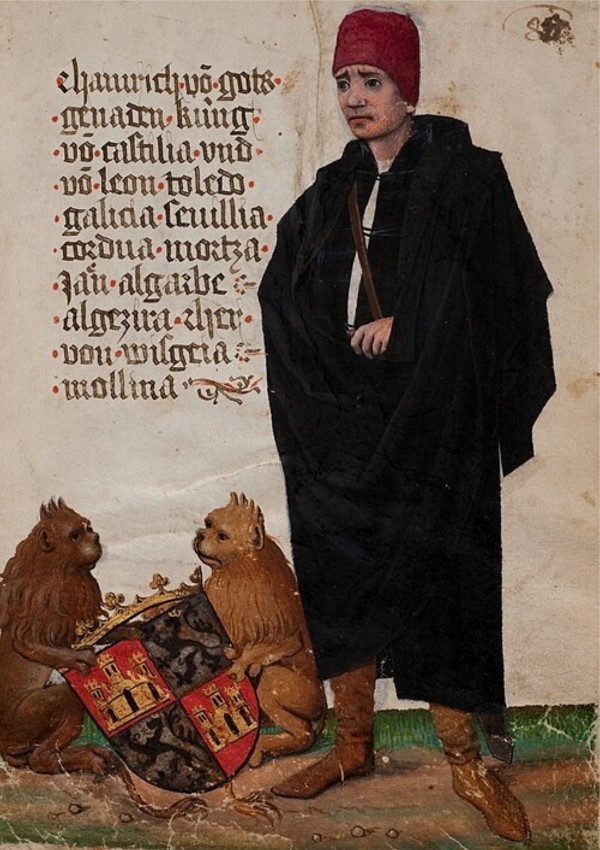 ·hainrich·võ·gots·
·genaden·küng·
·võ·castilia·vnd·
·võ·leon·toledo·
·galicia·seuillia·
·cordua·mortza·
·Jaň·algarbe
·algezira·zher·
·von·wisgeia
·mollina